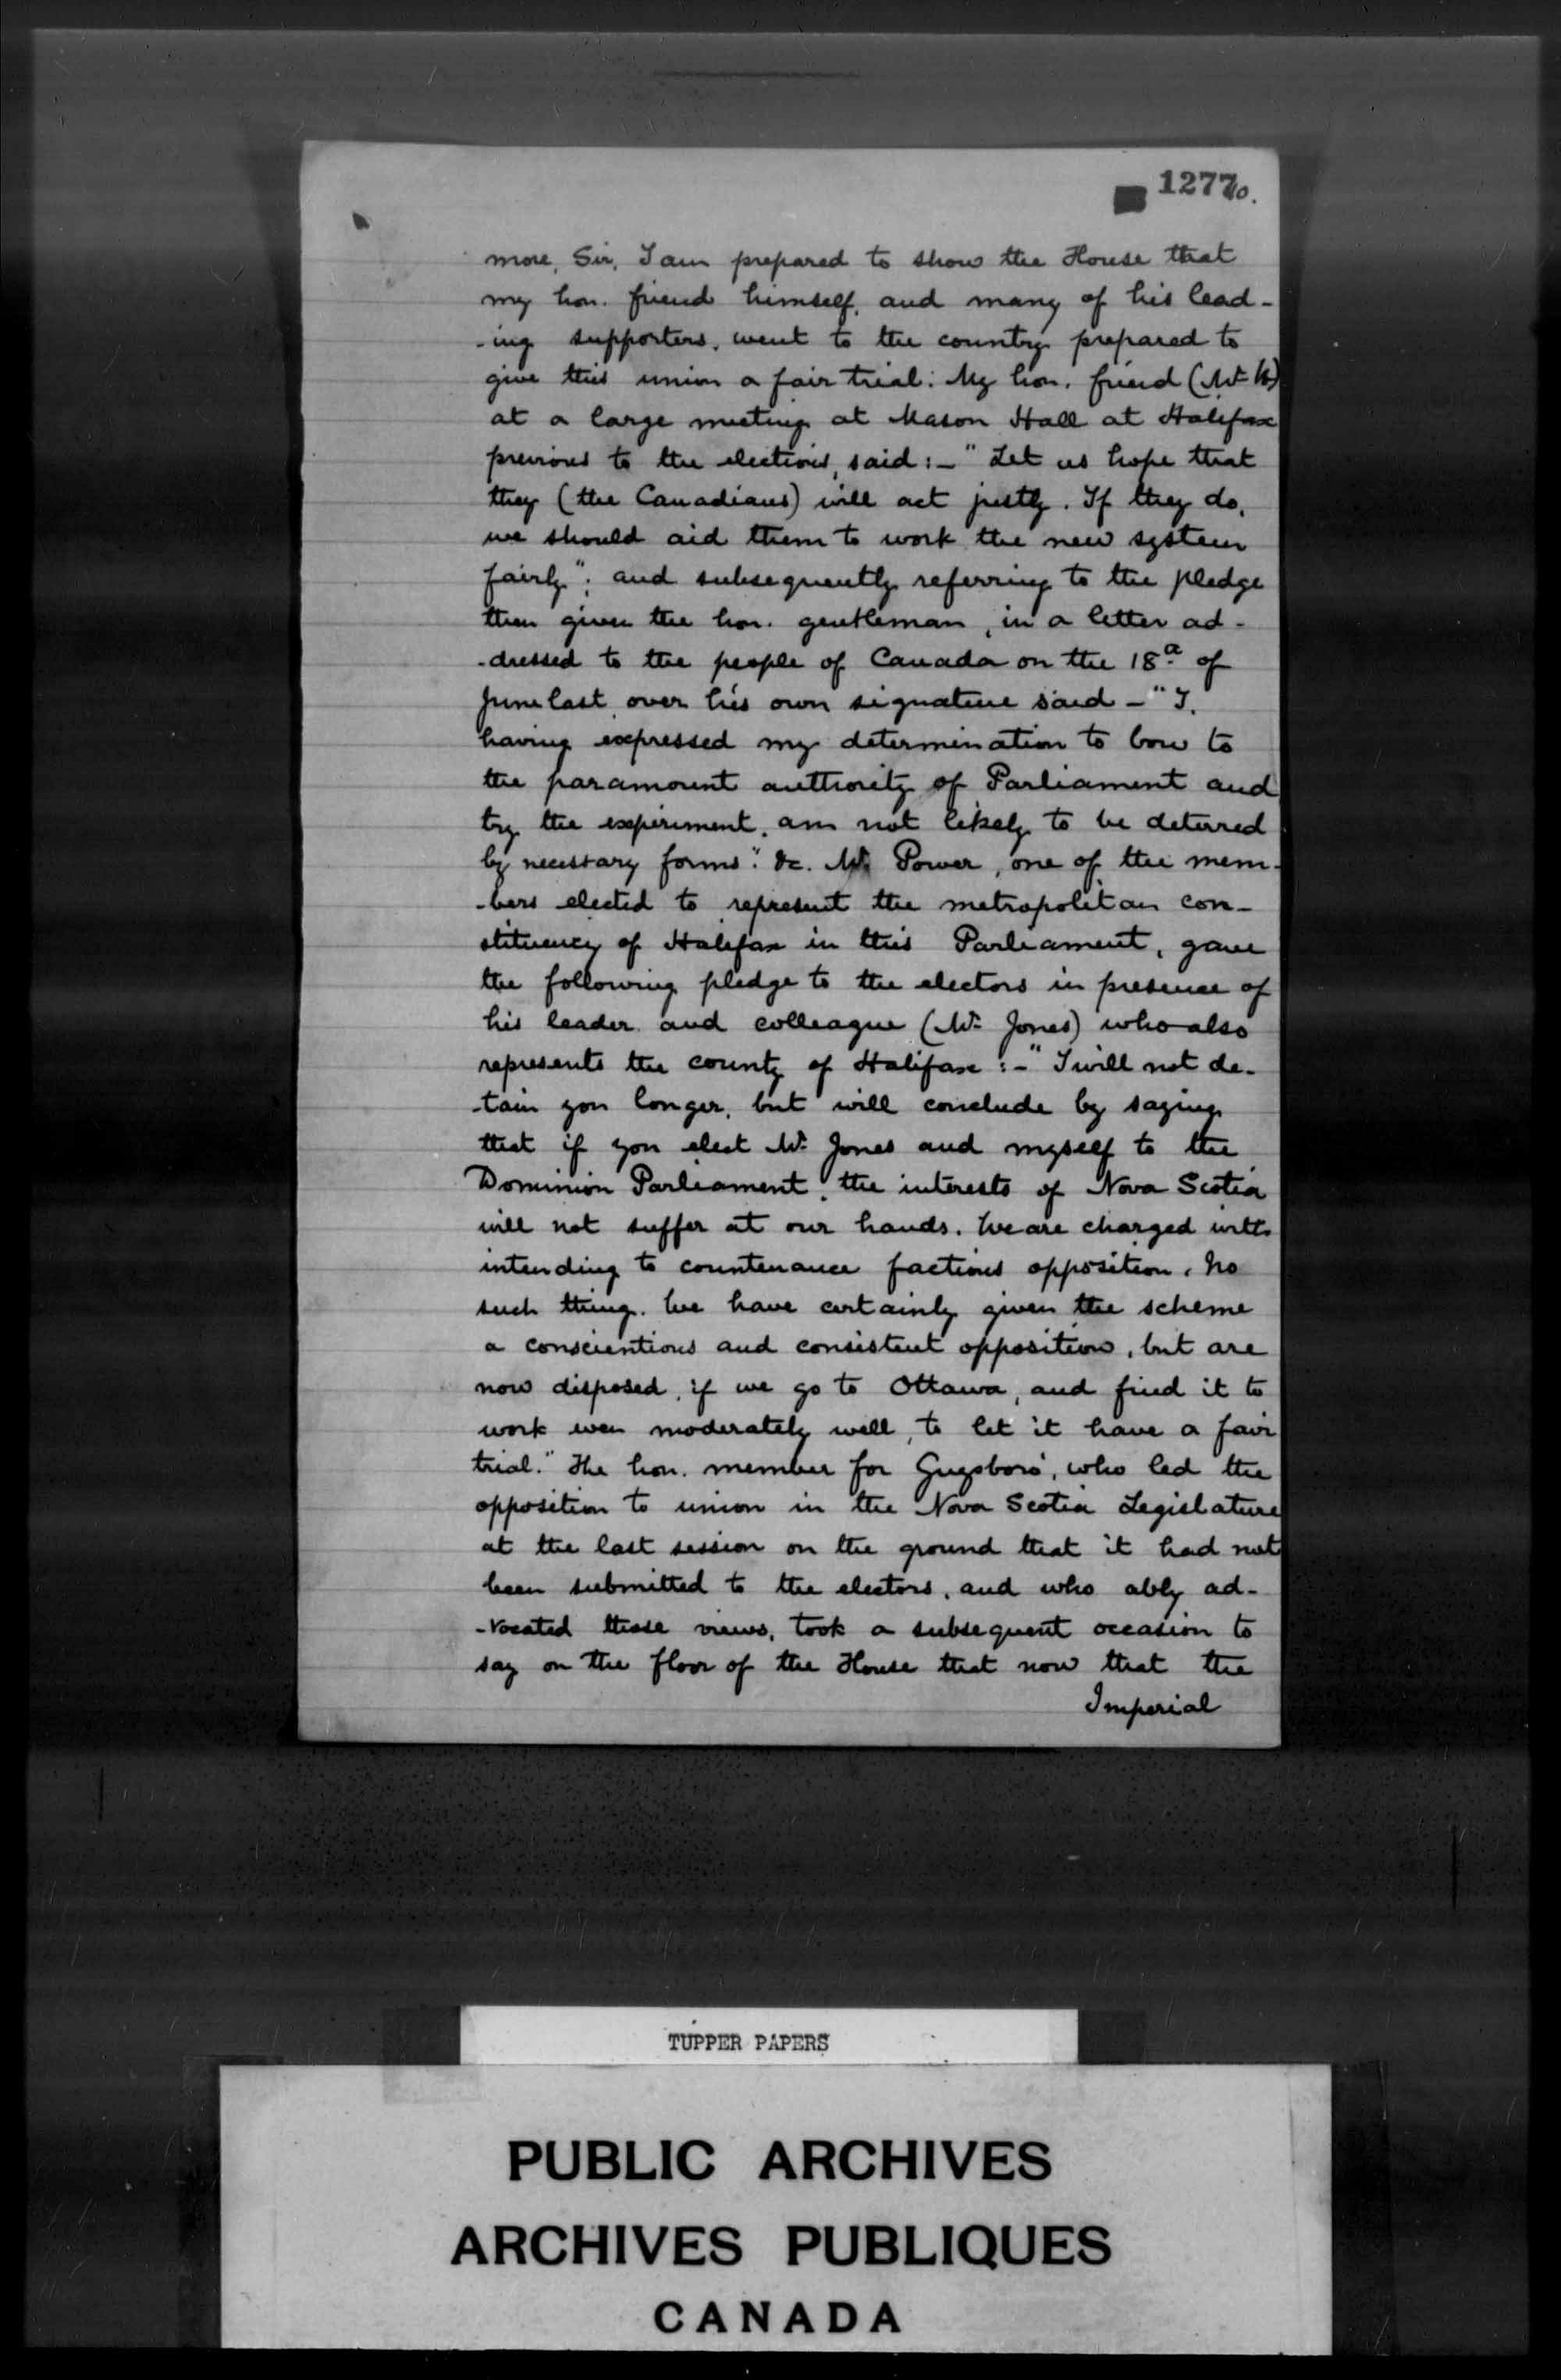 1277
10.
more, Sir, I am prepared to show the House that
my hon. friend himself, and many of his lead-
-ing supporters, went to the country prepared to
give this union a fair trial: My hon. friend (Mr H)
at a large meeting at Mason Hall at Halifax
previous to the elections, said:- "Let us hope that
they (the Canadians) will act justly. If they do,
we should aid them to work the new system
fairly"; and subsequently referring to the pledge
then given the hon. gentleman, in a letter ad-
-dressed to the people of Canada on the 18th of
June last, over his own signature said - "I,
having expressed my determination to bow to
the paramount authority of Parliament and
try the experiment, am not likely to be deterred
by necessary forms" &c. Mr Power, one of the mem-
-bers elected to represent the metropolitan con-
stituency of Halifax in this Parliament, gave
the following pledge to the electors in presence of
his leader and colleague (Mr Jones) who also
represents the county of Halifax:- "I will not de-
-tain you longer, but will conclude by saying
that if you elect Mr Jones and myself to the
Dominion Parliament, the interests of Nova Scotia
will not suffer at our hands. We are charged with
intending to countenance factious opposition. No
such thing. We have certainly given the scheme
a conscientious and consistent opposition, but are
now disposed, if we go to Ottawa, and find it to
work even moderately well, to let it have a fair
trial." The hon. member for Guysboro', who led the
opposition to union in the Nova Scotia Legislature
at the last session on the ground that it had not
been submitted to the electors, and who ably ad-
-vocated those views, took a subsequent occasion to
say on the floor of the House that now that the
Imperial
TUPPER PAPERS
PUBLIC ARCHIVES
ARCHIVES PUBLIQUES
CANADA